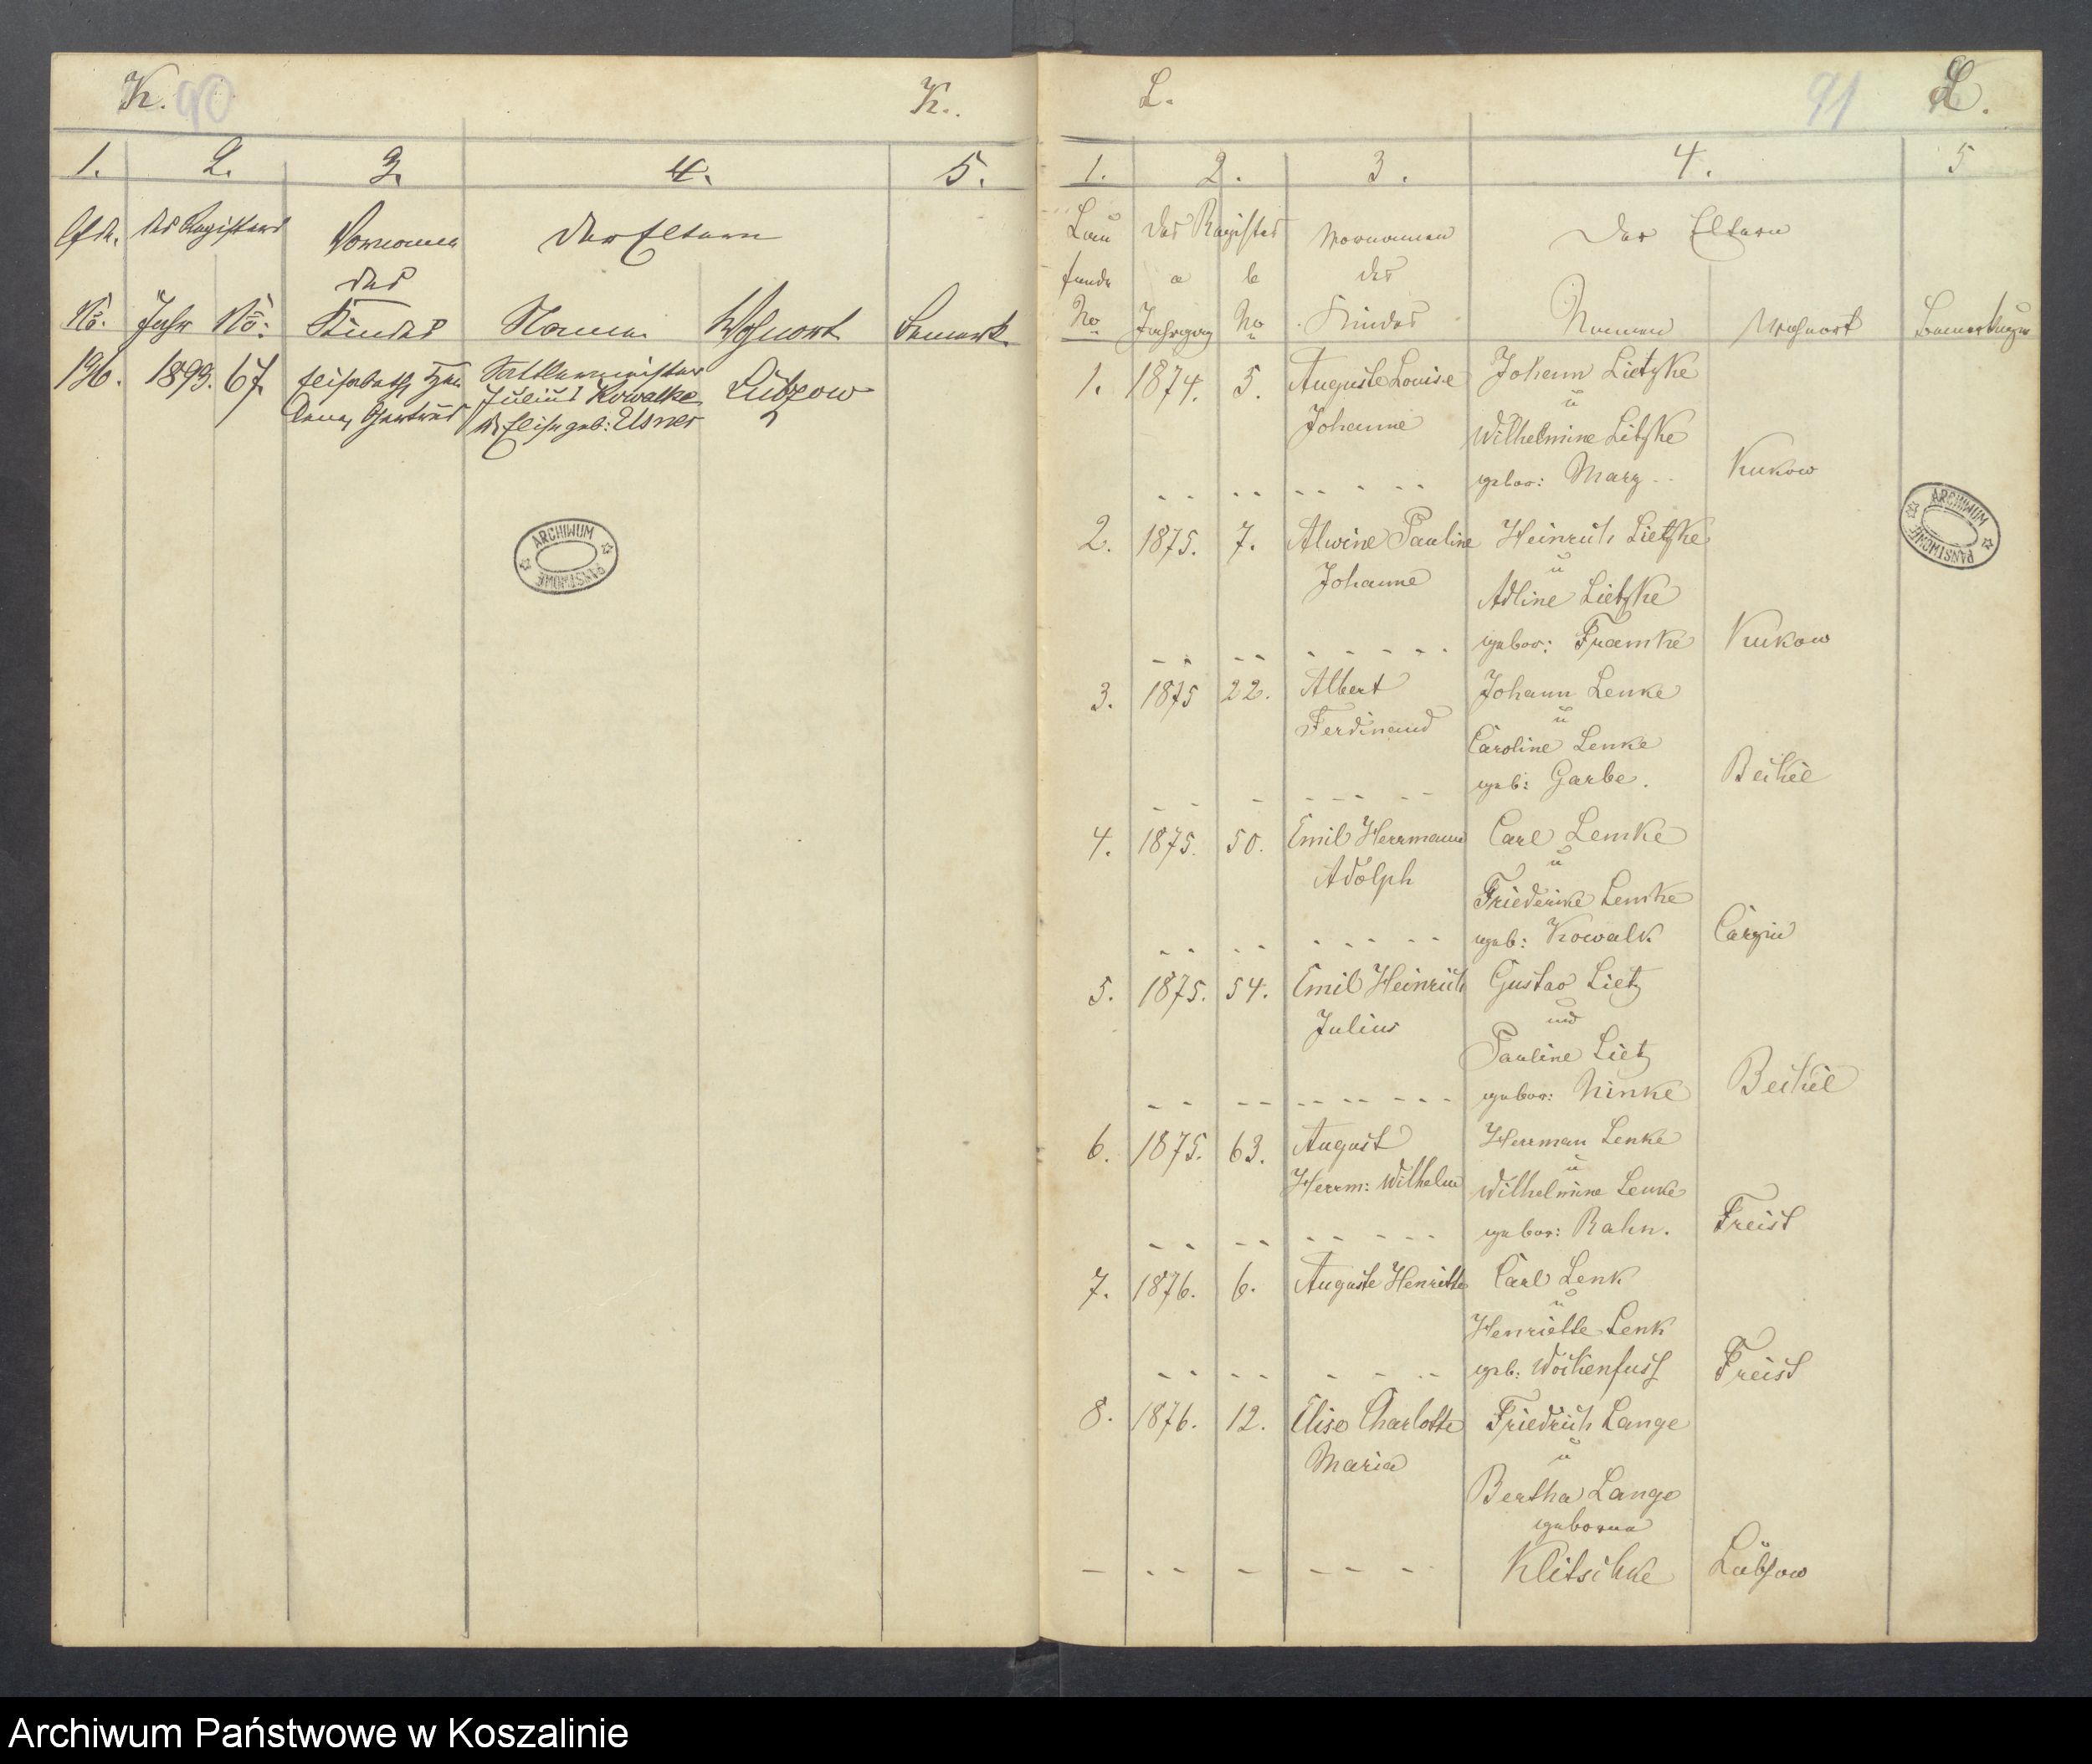 K. 90 K.
1. 2. 3. 4. 5.
lfde. des Registers Vornamen der Eltern
des
No. Jahr No: Kindes Namen Wohnort Bemerk.
196. 1899. 67. Elisabeth Sattlermeister Lübzow
Gertrud Julius Kowalke
Elise geb: Elsner
ARCHIWUM PAŃSTWOWE
L. 91 L.
1. 2. 3. 4. 5
Lau des Register Vornamen Der Eltern
fende a b des
No Jahrgag No Kindes Namen Wohnort Bemerkungen
1. 1874. 5. Auguste Louise Johann Lietzke
u
Johanne Wilhelmine Litzke
gebor: Marz Kukow
2. 1875. 7. Alwine Pauline Heinrich Lietzke
u
Johanne Adline Lietzke
gebor: Framke Kukow
ARCHIWUM PAŃSTWOWE
3. 1875 22. Albert Johann Lenke
u
Ferdinand Caroline Lenke
geb: Garbe. Beckel
4. 1875. 50. Emil Herrmann Carl Lemke
u
Adolph Friederike Lemke
geb: Kowalk Carzin
5. 1875. 54. Emil Heinrich Gustav Lietz
und
Julius Pauline Lietz
gebor: Ninke Beckel
6. 1875. 63. August Herrman Lenke
u
Herrm: Wilhelm Wilhelmine Lenke
gebor: Rahn. Freist
7. 1876. 6. Auguste Henriette Carl Lenk
u
Henriette Lenk
geb: Wockenfuss Freist
8. 1876. 12. Elise Charlotte Friedrich Lange
u
Maria Bertha Lange
geborne
Klitschke Lübsow
Archiwum Państwowe w Koszalinie